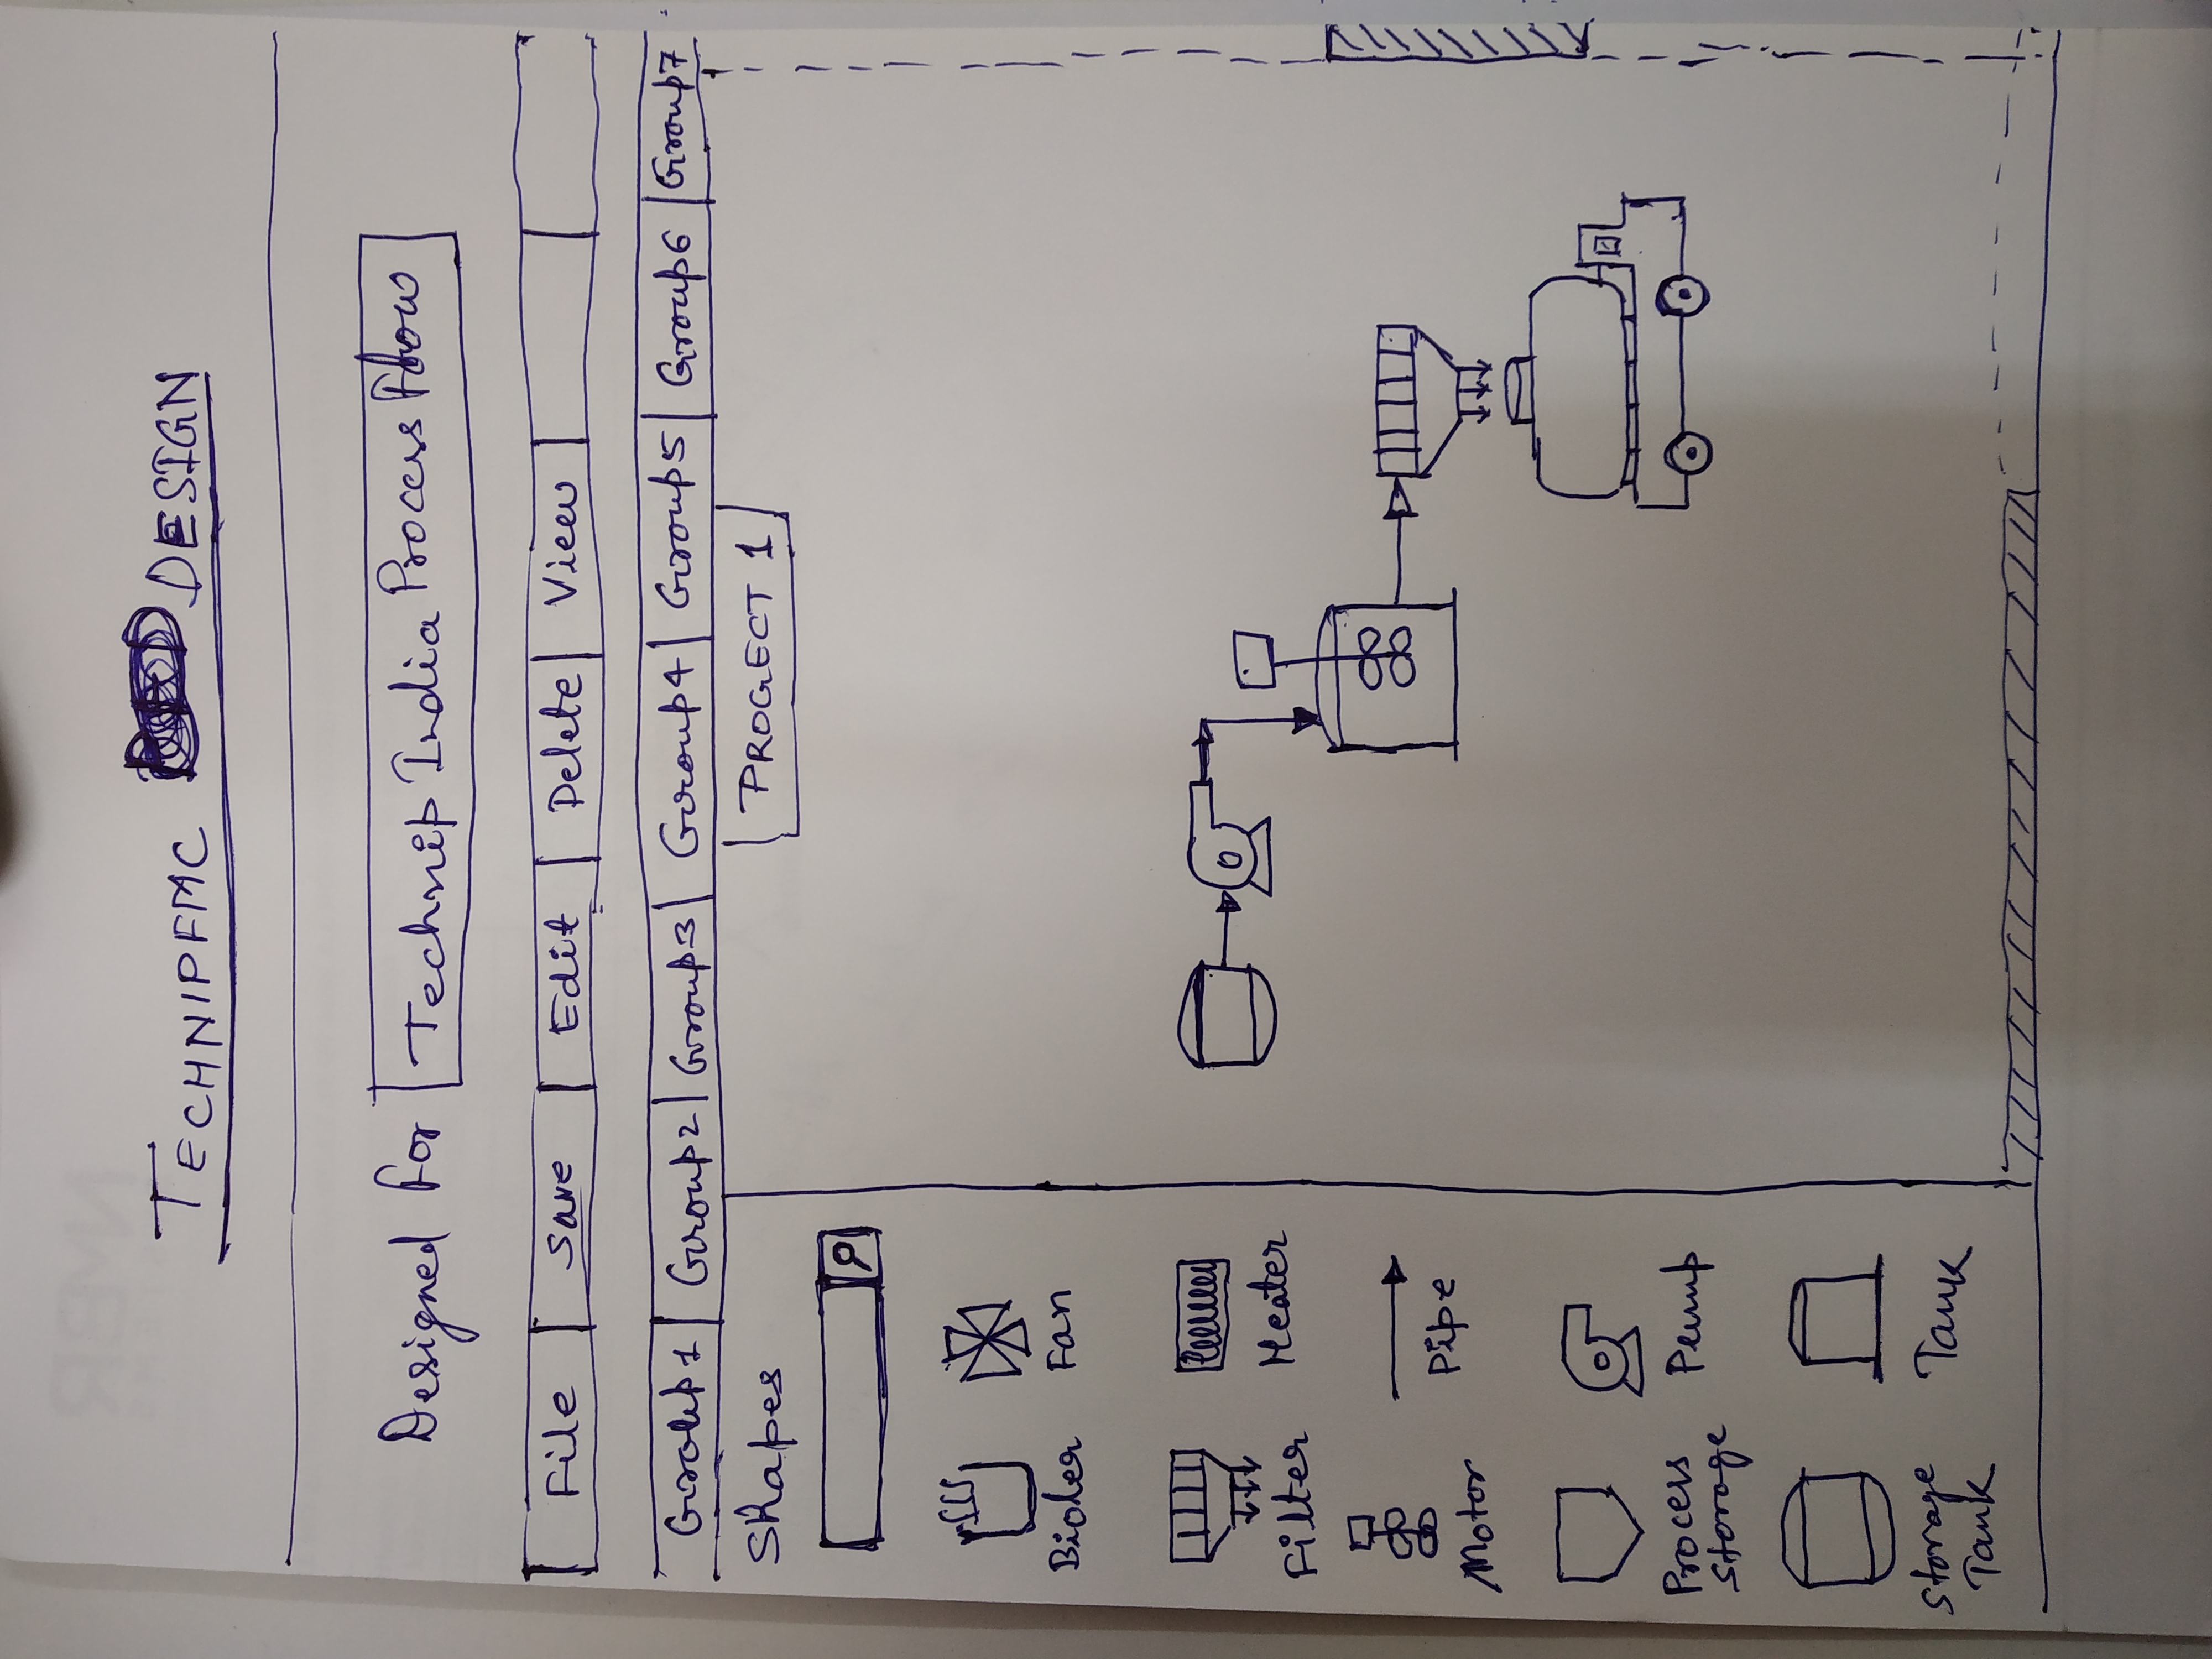 TECHNIPFMC DESIGN
Designed For Technip India Process Flow
File Save Edit Delete View
Group1 Group2 Group3 Group4 Group5 Group6 Group7
Shapes
PROGECT 1
Bioler Fan
Filter Heater
Motor Pipe
Process Pump
Storage
Storage Tank
Tank